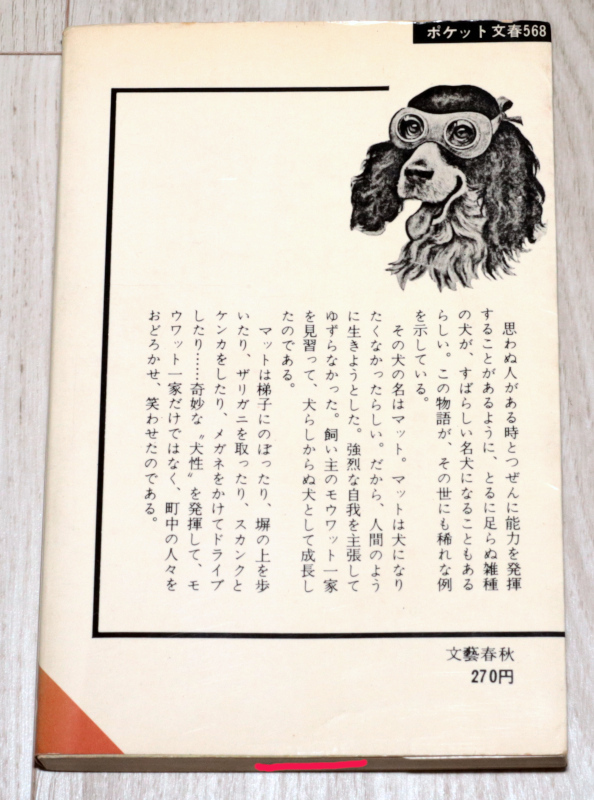 ポケット文春568
思わぬ人がある時とつぜんに能力を発揮
することがあるように、とるに足らぬ雑種
の犬が、すばらしい名犬になることもある
らしい。この物語が、その世にも稀れな例
を示している。
その犬の名はマット。マットは犬になり
たくなかったらしい。だから、人間のよう
に生きようとした。強烈な自我を主張して
ゆずらなかった。飼い主のモウワット一家
を見習って、犬らしからぬ犬として成長し
たのである。
マットは梯子にのぼったり、塀の上を歩
いたり、ザリガニを取ったり、スカンクと
ケンカをしたり、メガネをかけてドライブ
したり……奇妙な〝犬性〟を発揮して、モ
ウワット一家だけではなく、町中の人々を
おどろかせ、笑わせたのである。
文藝春秋
270円